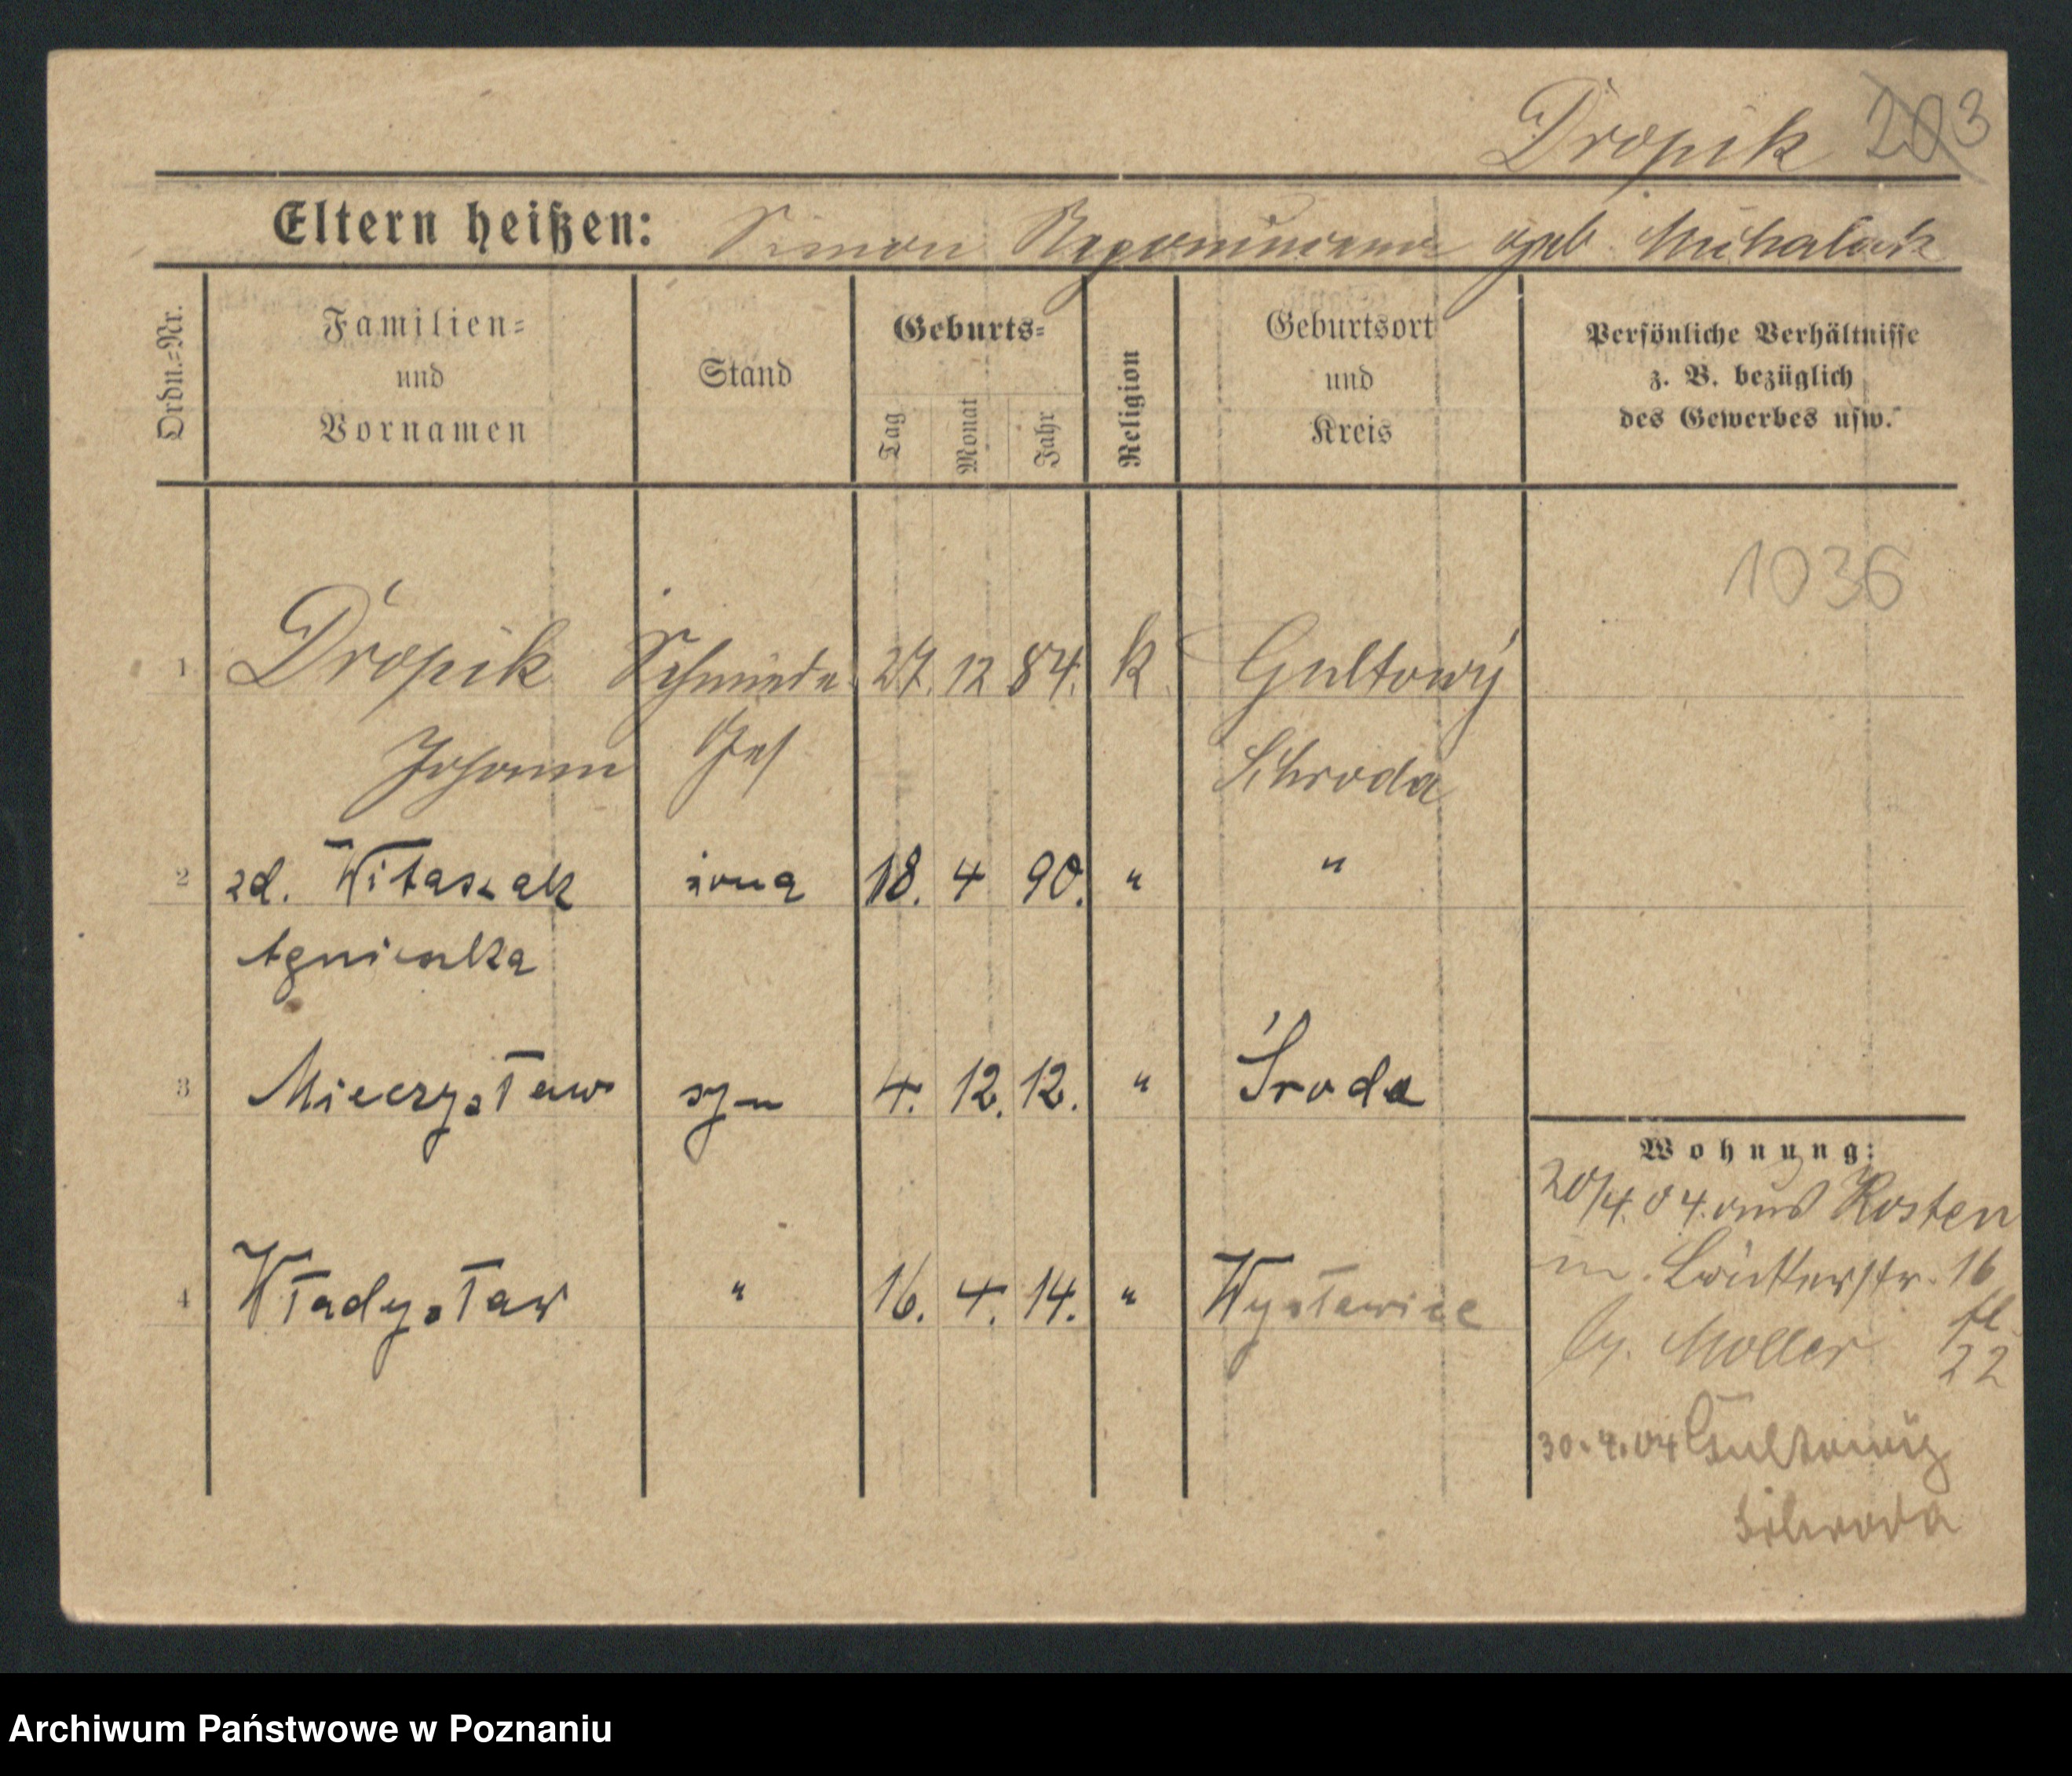 Dropik 203
Eltern heißen: Simon geb. Michalak
Ordn.=Nr.
Familien=
und
Vornamen
Stand
Geburts=
Tag
Monat
Jahr
Religion
Geburtsort
und
Kreis
Persönliche Verhältnisse
z. B. bezüglich
des Gewerbes usw.
1036
1 Dropik Schmiede 27. 12 84. k. Gultowy
Johann Ges Schroda
2 zd. Witaszak żona 18. 4 90. " "
Agnieszka
3 Mieczysław syn 4. 12. 12. " Środa
4 Władysław " 16. 4. 14. " Wysławice
Wohnung:
20/4. 04. aus Kosten
16
Moller fl.
22
30.4.04 Gultowy
Schroda
Archiwum Państwowe w Poznaniu